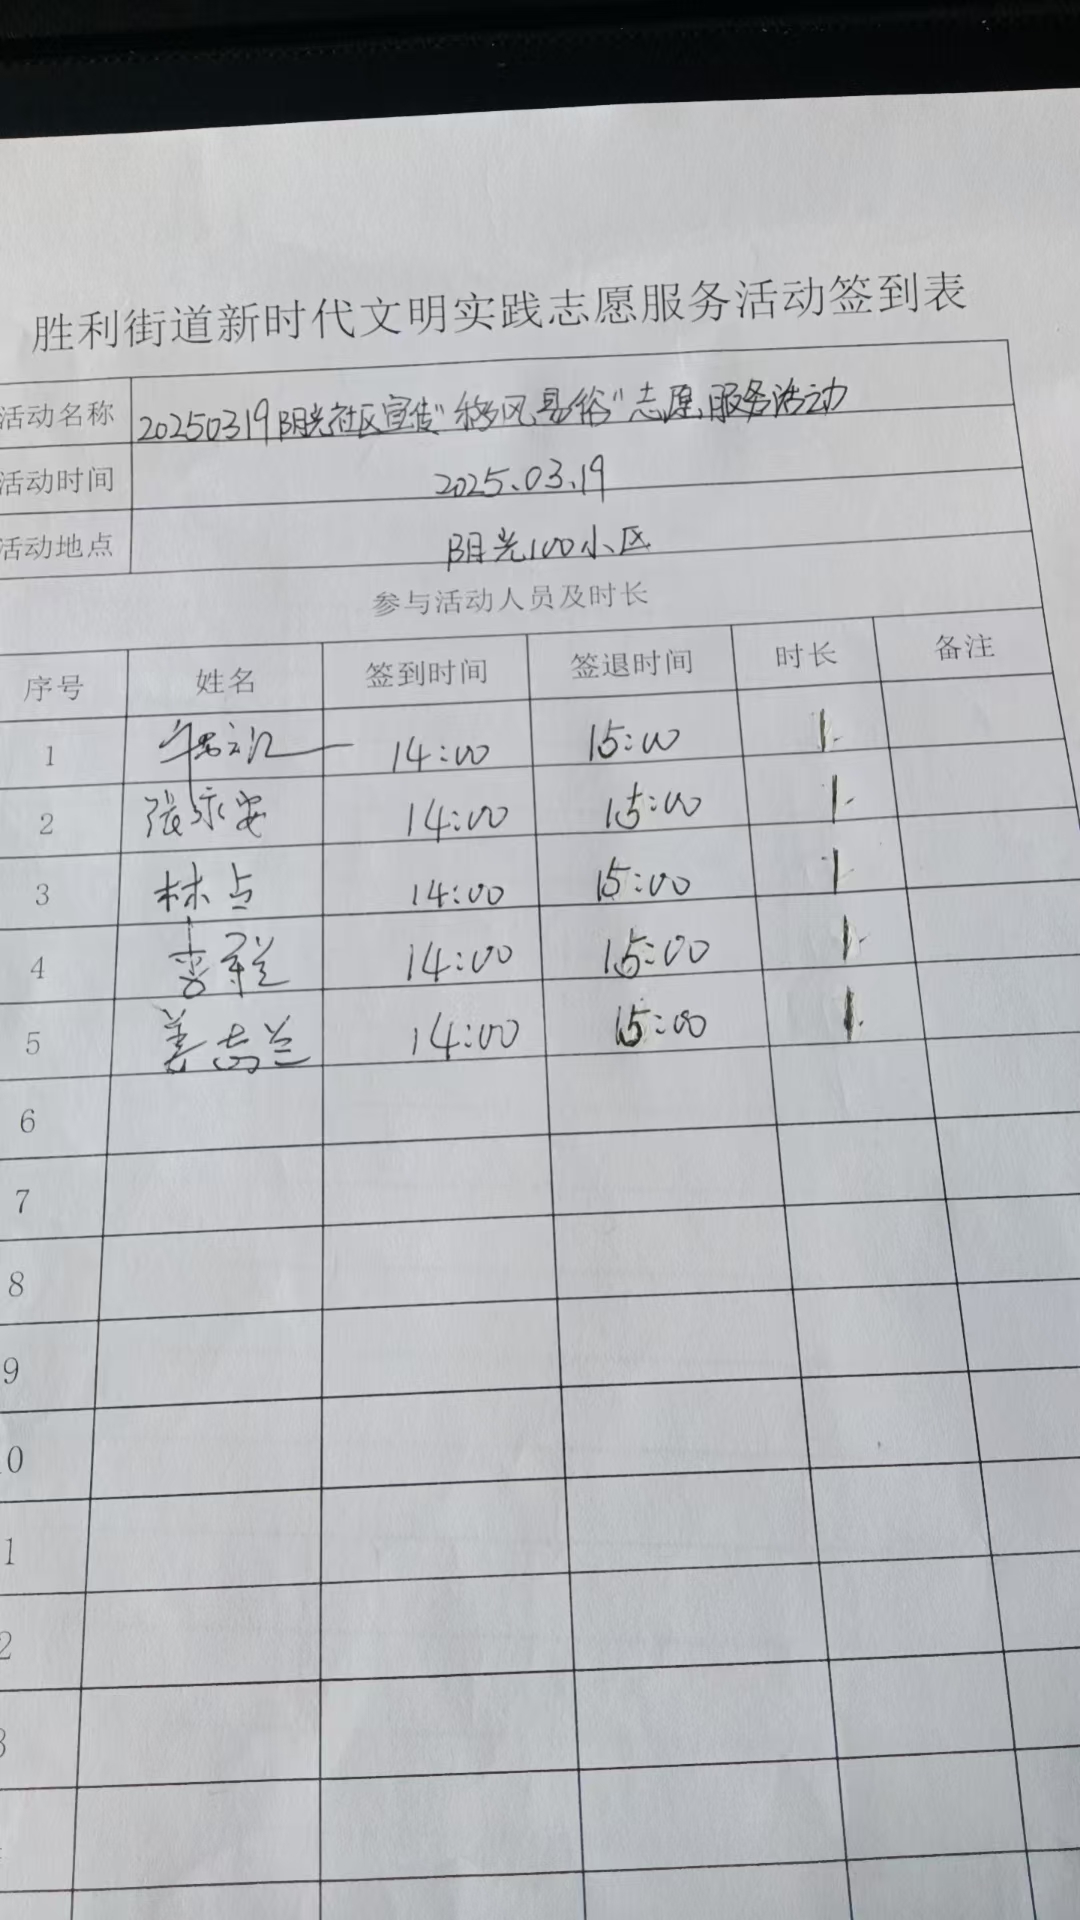 胜利街道新时代文明实践志愿服务活动签到表
活动名称 20250319阳光社区宣传"移风易俗"志愿服务活动
活动时间 2025.03.19
活动地点 阳光100小区
参与活动人员及时长
序号 姓名 签到时间 签退时间 时长 备注
1 14:00 15:00 1
2 张永安 14:00 15:00 1
3 林占 14:00 15:00 1
4 14:00 15:00 1
5 姜志兰 14:00 15:00 1
6
7
8
9
0
1
2
3